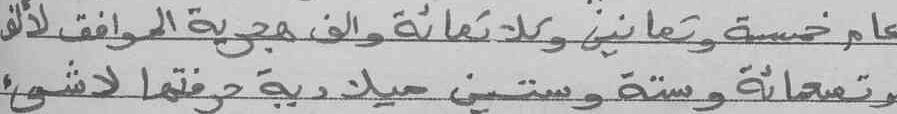 عام خمسة وثمانين وثلاثمائة والف هجرية الموافق لألف
وتسعمائة وستة وستين ميلادية حرفتها لا شيء